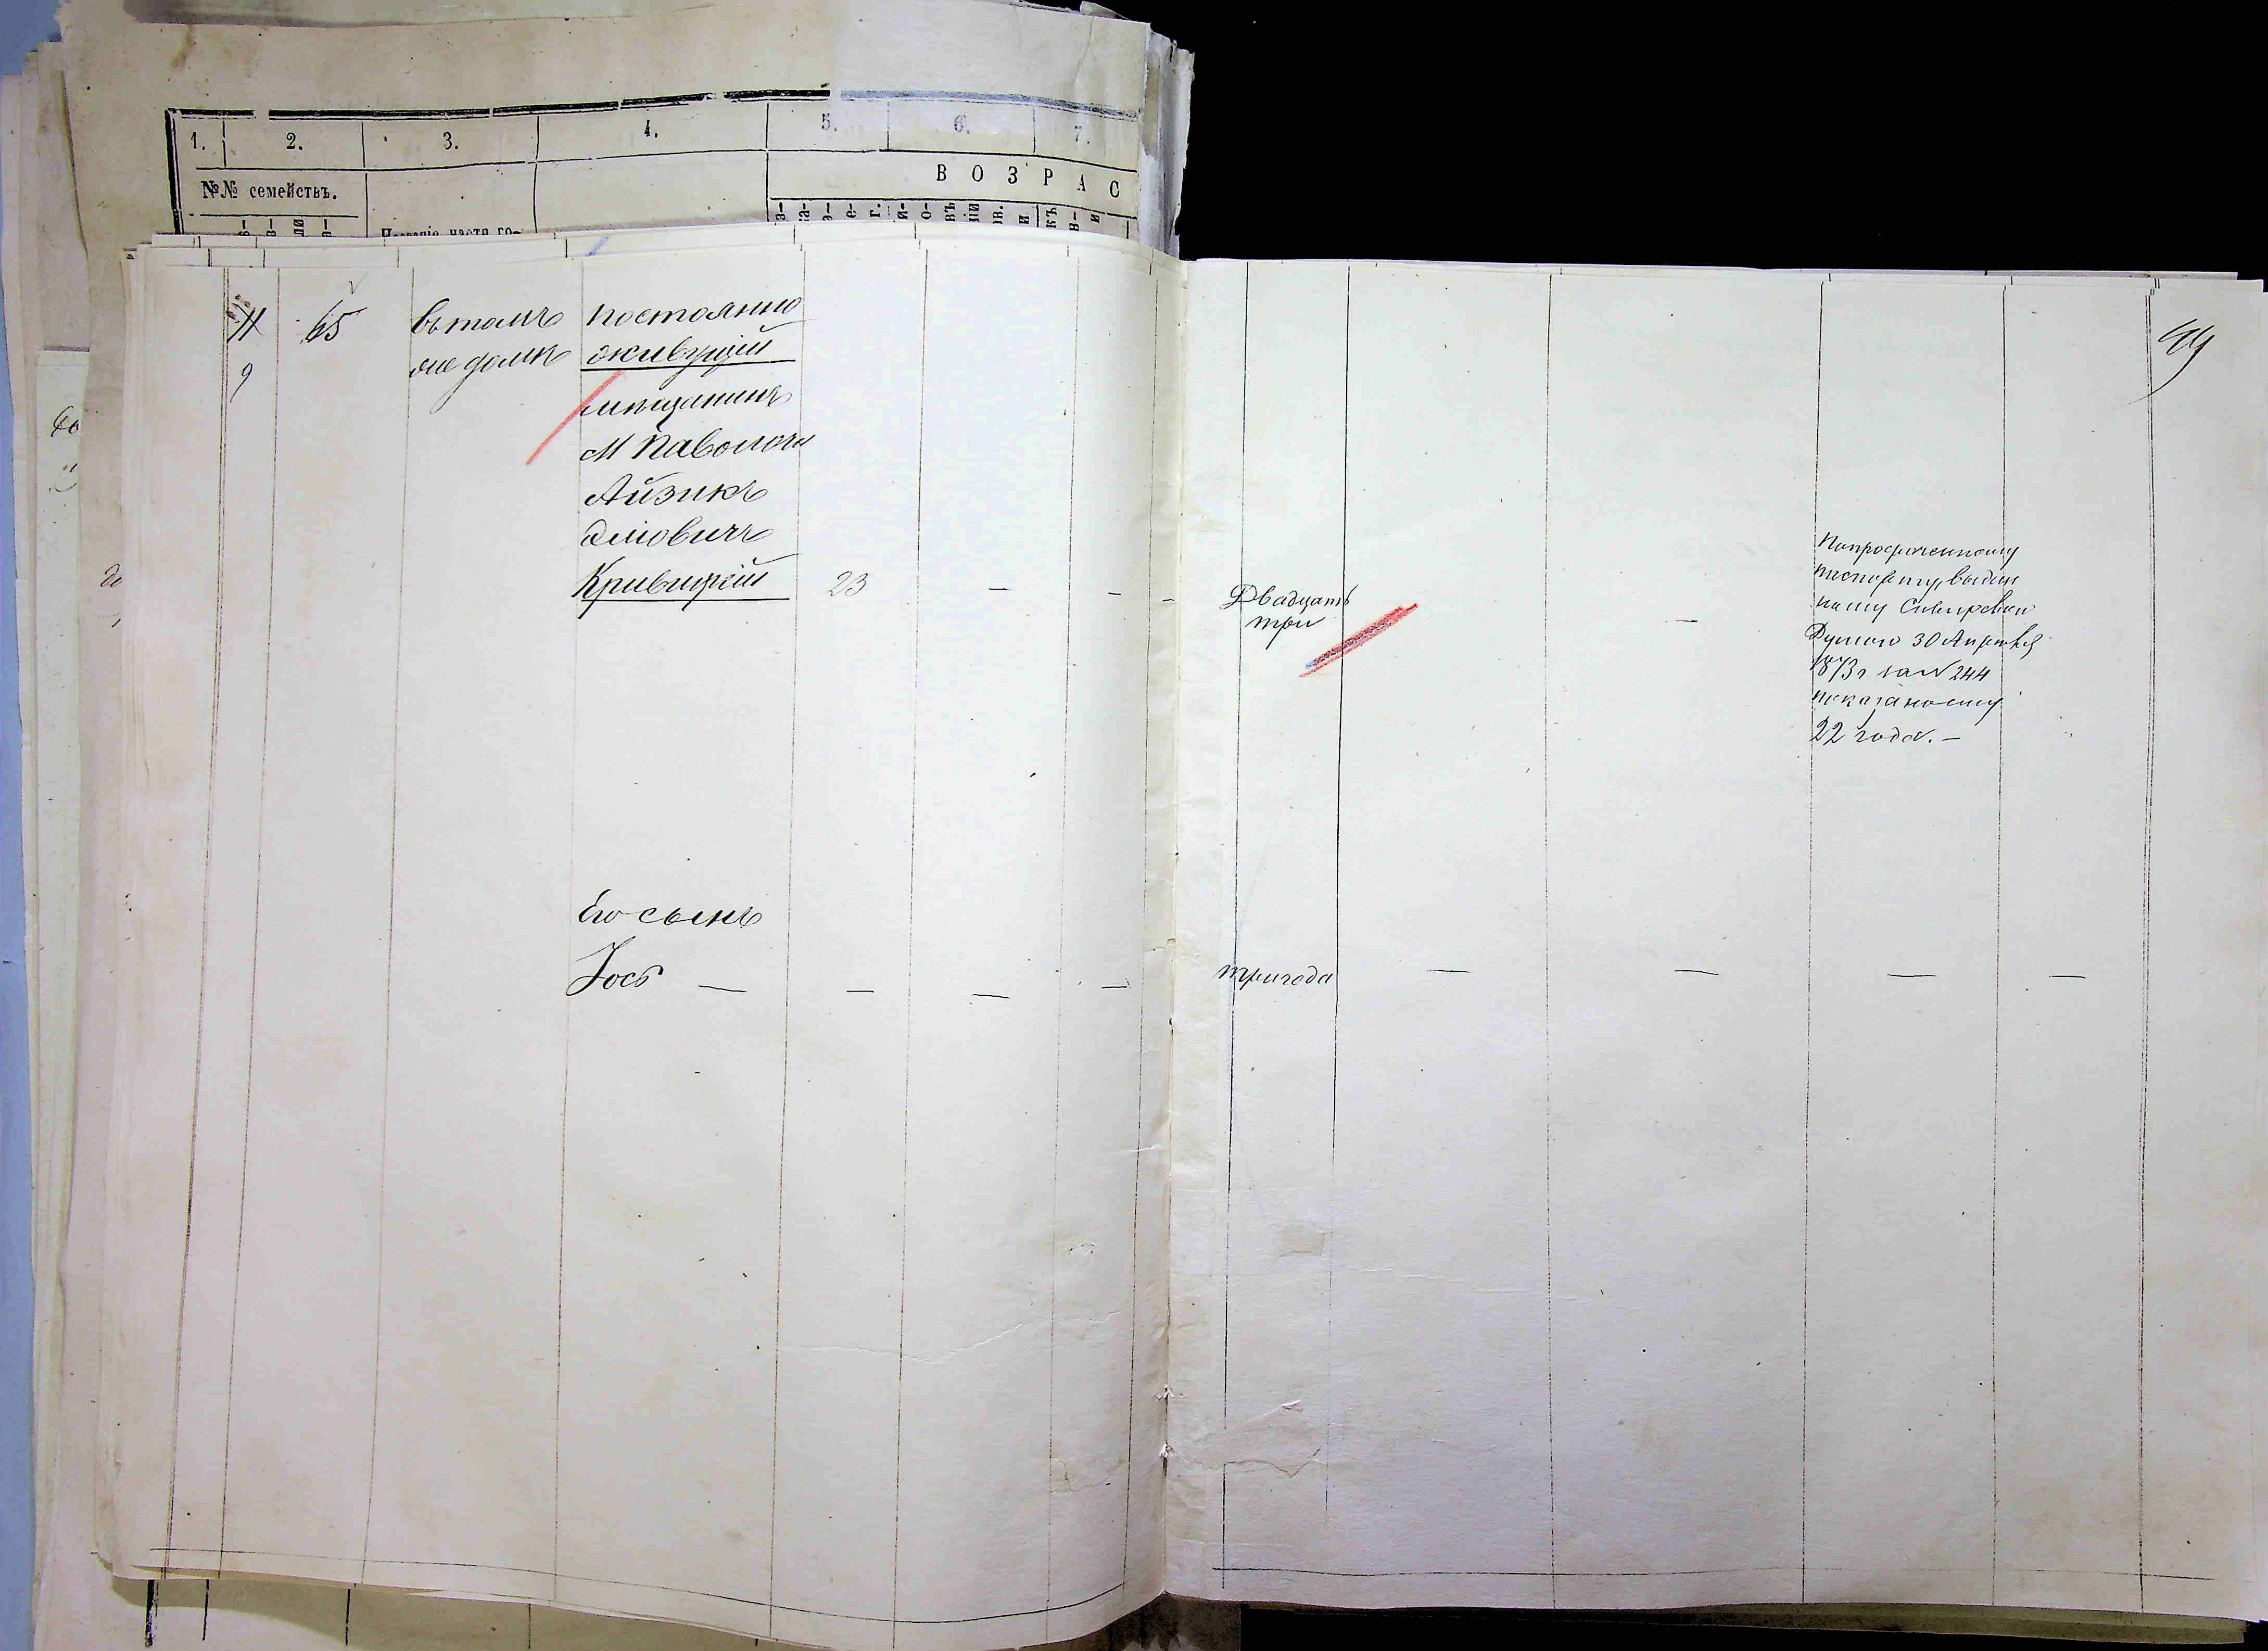 1. 2. 3. 4. 5. 6. 7.
В О З Р А С
№№ семействъ.
Названіе части го-
9 65 въ томъ постоянно
же домѣ живущій
мѣщанинъ
М Паволочи
Айзикъ
Эліовичъ
Кривицкій 23 — — —
Двадцать
три —
Попросроченному
паспорту, выдан
ному Сквирскою
Думою 30 Апрѣля
1873 г за № 244
показано ему
22 года. —
Его сынъ
Іось — — — —
три года — — — —